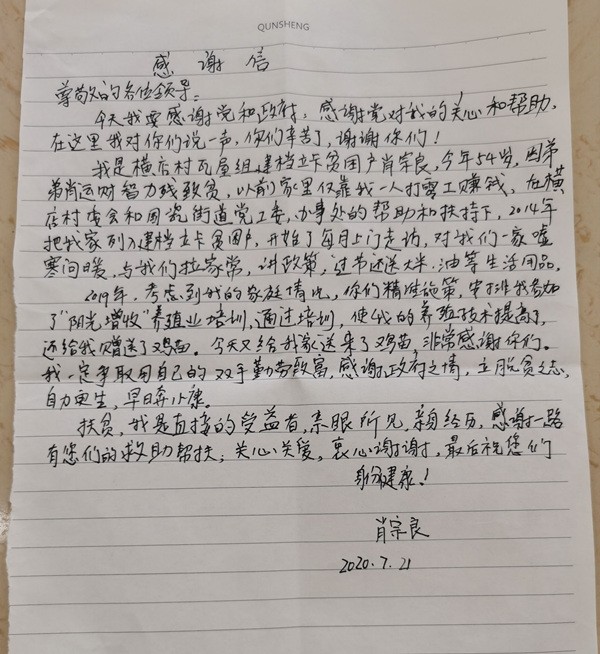 QUNSHENG
感谢信
尊敬的各位领导：
今天我要感谢党和政府，感谢党对我的关心和帮助，
在这里我对你们说一声，你们辛苦了，谢谢你们！
我是横店村瓦屋组建档立卡贫困户肖宗良，今年54岁，因弟
弟肖运财智力残致贫，以前家里仅靠我一人打零工赚钱，在横
店村委会和国瓷街道党工委、办事处的帮助和扶持下，2014年
把我家列入建档立卡贫困户，开始了每月上门走访，对我们一家嘘
寒问暖，与我们拉家常，讲政策，过节还送大米、油等生活用品。
2019年，考虑到我的家庭情况，你们精准施策，安排我参加
了"阳光增收"养殖业培训，通过培训，使我的养殖技术提高了，
还给我赠送了鸡苗。今天又给我家送来了鸡苗，非常感谢你们。
我一定争取用自己的双手勤劳致富，感谢政府之情，立脱贫之志，
自力更生，早日奔小康。
扶贫，我是直接的受益者，亲眼所见，亲身经历，感谢一路
有您们的救助帮扶，关心关爱，衷心谢谢，最后祝您们
身份健康！
肖宗良
2020.7.21